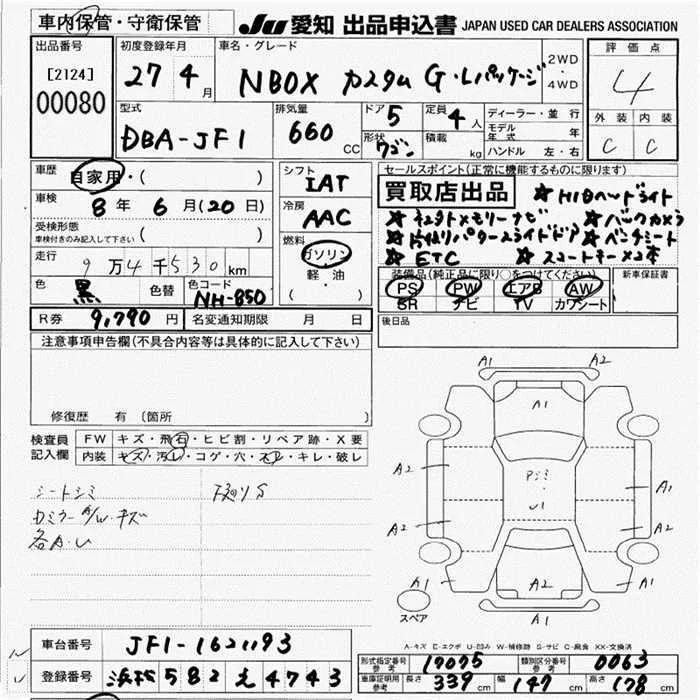 車内保管・守衛保管
JU 愛知 出品申込書 JAPAN USED CAR DEALERS ASSOCIATION
出品番号
[2124]
00080
初度登録年月
27 4月
車名・グレード
NBOX カスタム G・Lパッケージ
2WD・4WD
評価点
4
外装 内装
C C
型式
DBA-JF1
排気量
660 CC
ドア 5
形状 ワゴン
定員 4人
積載 kg
ディーラー・並行
モデル年式 年
ハンドル 左・右
車歴 自家用・( )
車検 8年 6月(20日)
受検形態
車検付きのみ記入して下さい ( )
走行 9万4千530km
色 黒 色替 色コード NH-850
シフト IAT
冷房 AAC
燃料 ガソリン
軽油
( ・ )
セールスポイント(正常に機能するものに限ります)
買取店出品 ★HIDヘッドライト
★バックカメラ
★ベンチシート
★ETC ★スマートキー×2本
装備品(純正品に限り○をつけてください) 新車保証書
PS PW エアB AW
SR ナビ TV カワシート
後日品
R券 9,790円 名変通知期限 月 日
注意事項申告欄(不具合内容等は具体的に記入して下さい)
修復歴 有 (箇所 )
検査員記入欄
FW キズ・飛石・ヒビ割・リペア跡・X要
内装 キズ・汚レ・コゲ・穴・スレ・キレ・破レ
シートシミ
各A・U
A1 A2
A1
A2 A1
A2 A2
A1 A2 A1
A1
U1
スペア
A-キズ E-エクボ U-凹み W-補修跡 S-サビ C-腐食 XX-交換済
車台番号 JF1-1621193
登録番号 浜松 582 え 4743
形式指定番号 参考 17075 類別区分番号 参考 0063
車庫証明用 参考 長さ 339cm 幅 147cm 高さ 178cm